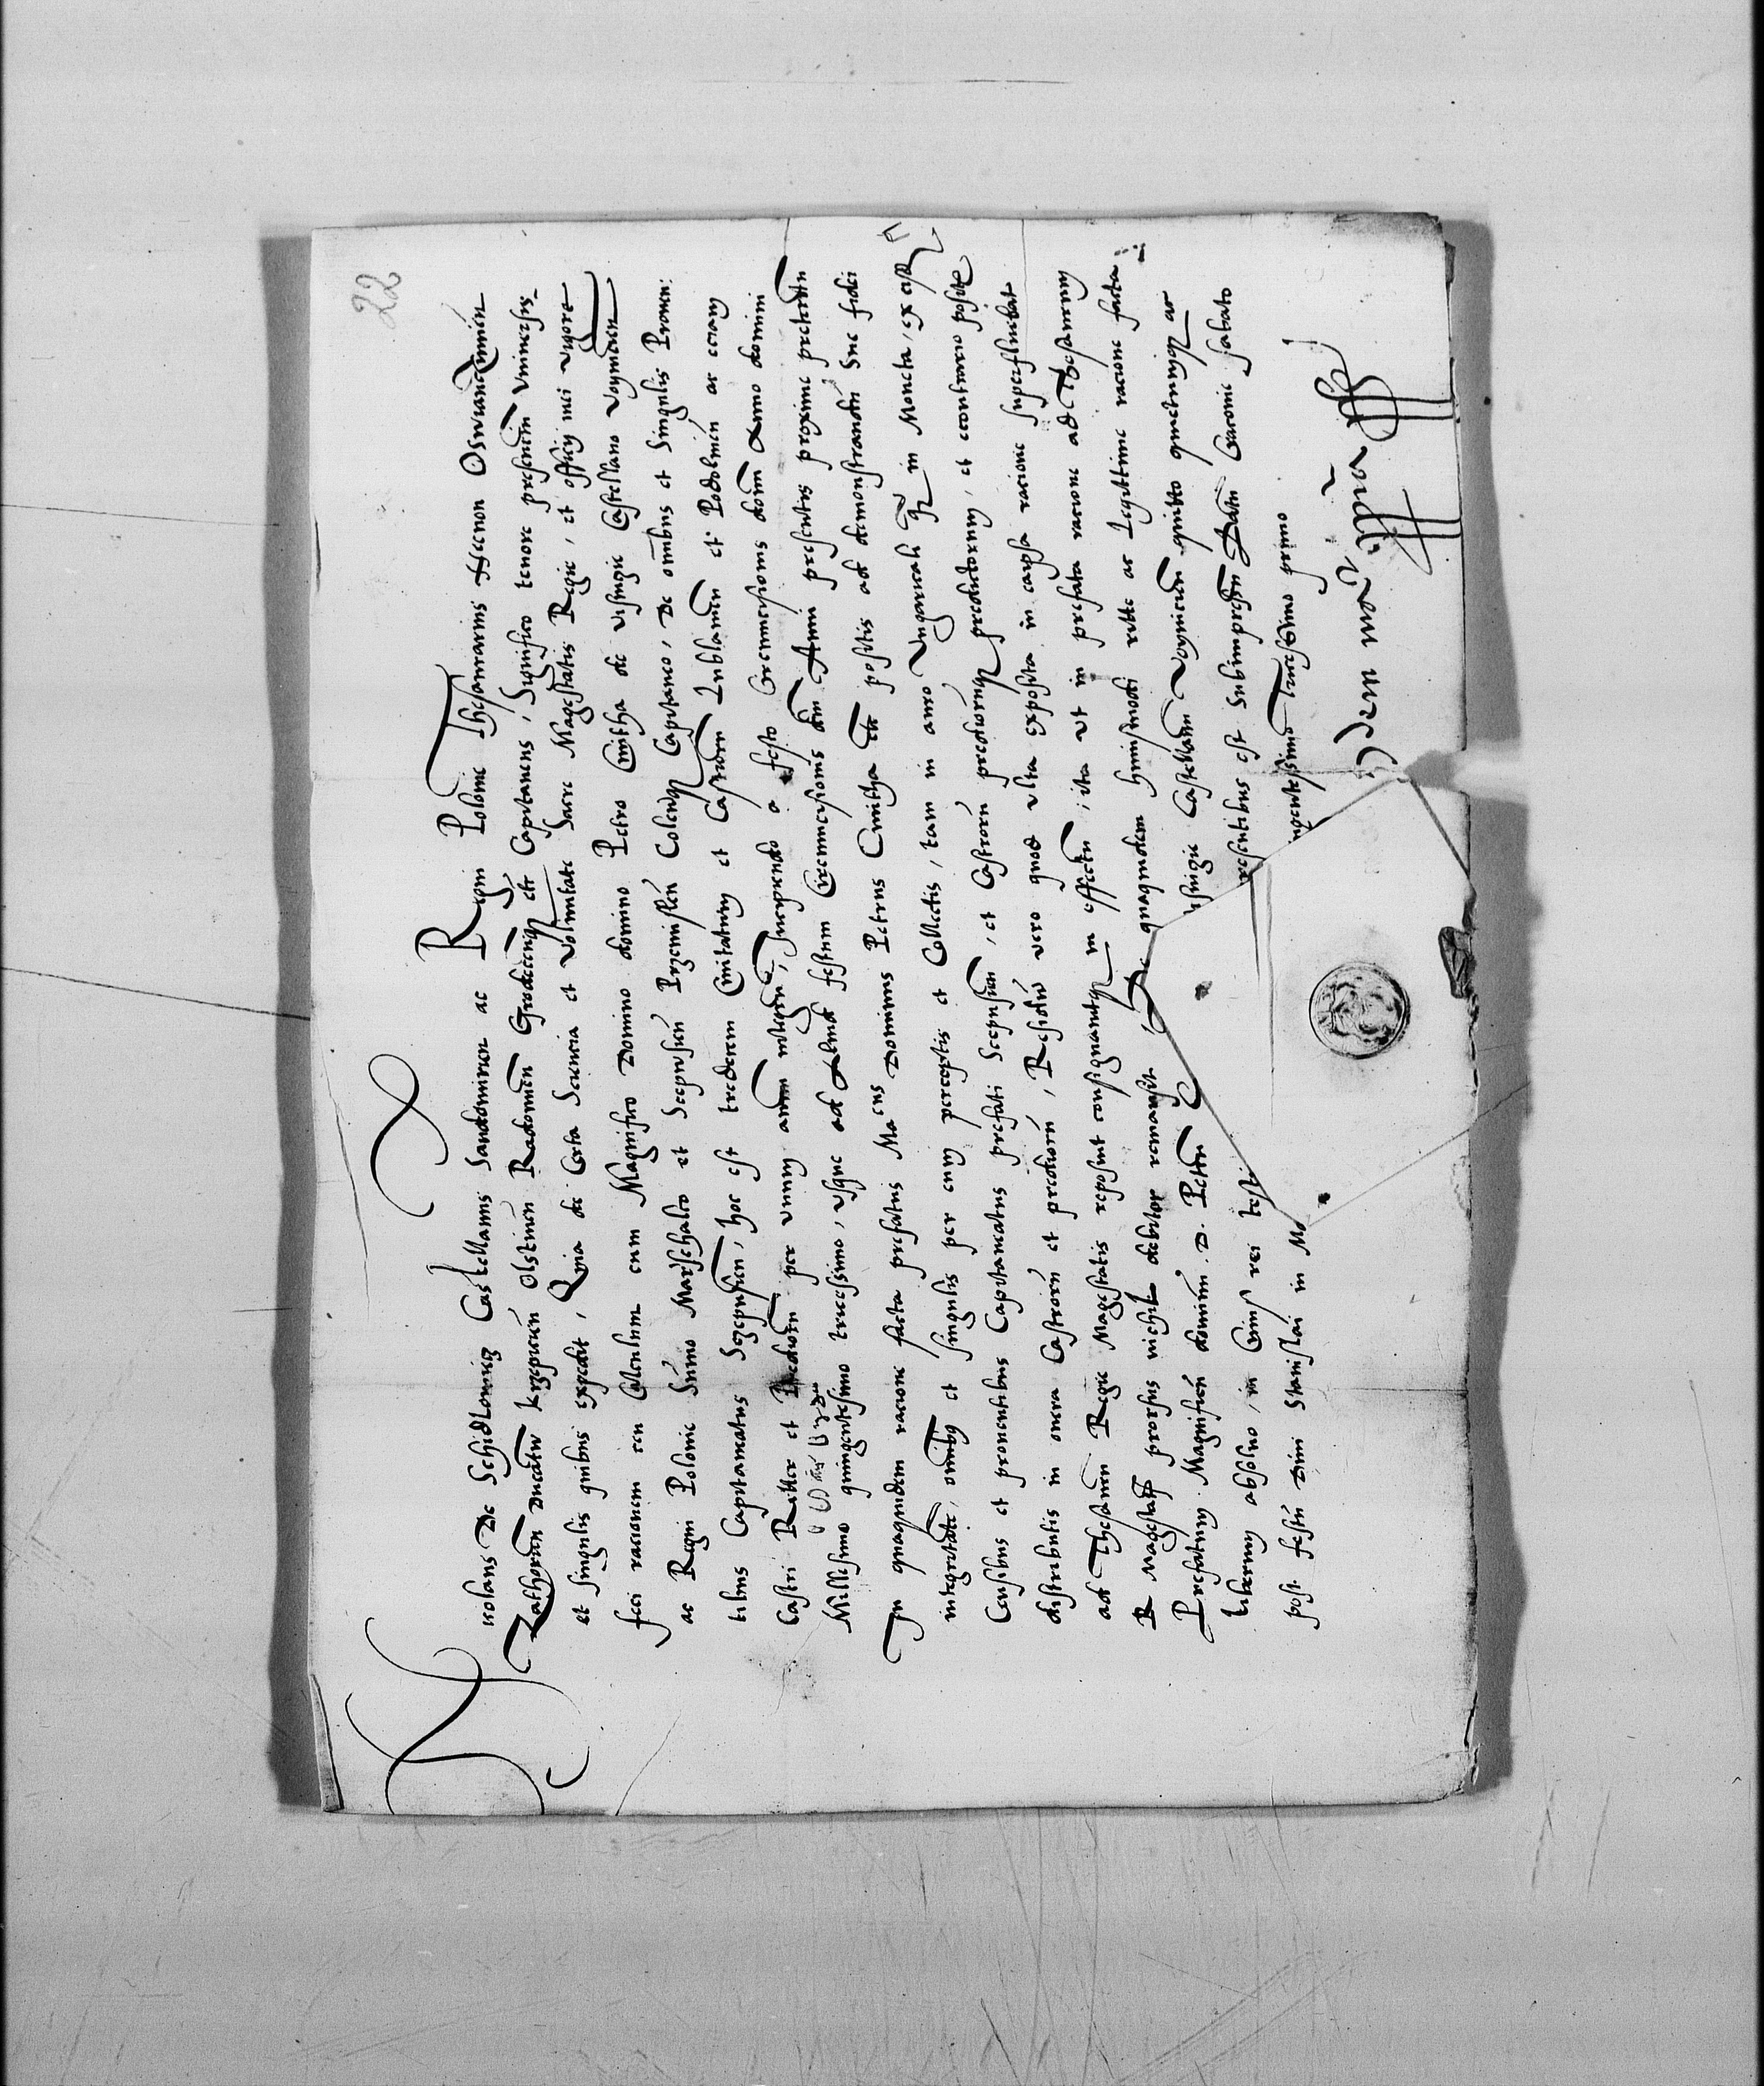 22
Nicolaus De Schidloviecz Castellanus Sandomirien ac Regni Polonie Thesaurarius Necnon Osviancimen
Zathorien ducatuu krzepicen Olstinen Radomien Grodecenqz etc Capitaneus, Significo tenore presencium Vniversis
et singulis quibus expedit, Quia de Certa Sciencia et voluntate Sacre Magestatis Regie, et officij mei vigore
feci racionem seu Calculum cum Magnifico Domino domino Petro Cmitha de visnyze Castellano voynicen
ac Regni Polonie Summo Marschalco et Scepusien Przemislien Colenqz Capitaneo, De omnibus et Singulis Proven:
tibus Capitaneatus Sczepusien, hoc est tredecem Civitatum et Castrorum Lublamien et Podolinen ac eciam
Castri Rithter et Prediorum per vnum annum integrum, Incipiendo a festo Circumcisionis domini Anno domini
Millesimo quingentesimo tricesimo, vsque ad Aliud festum Circumcisionis domini Anni presentis proxime preteritum
In quaquidem racione facta prefatus Ma cus Dominus Petrus Cmitha etc positis ad demonstrandum Sue fidei
integritate, omnibus et singulis per eum perceptis et Collectis, tam in auro Vngaricali qz in Moneta, ex
Censibus et proventibus Capitaneatus prefati Scepusien, et Castrorum prediorumqz predictorum, et econtrario positis
distributis in onera Castrorum et prediorum, Residuum vero quod vltra exposita in eaipsa racione superfluebat
ad Thesaurum Regie Magestatis reposuit consignavitqz in effectu, ita vt in prefata racione ad Thesaurum
R Magestatis prorsus nichil debitor remansit, De quaquidem huiusmodi ritte ac Legittime racione facta
Prefatum Magnificum dominum .D. Petrum visnize Castellanum Voynicen quitto quietumqz ac
liberum absolvo, in Cuius rei testi resentibus est Subimpressum Datum Cracovie sabato
post festum Divi Stanislai in M ngentesimo Tricesimo primo
Idem manu ppria